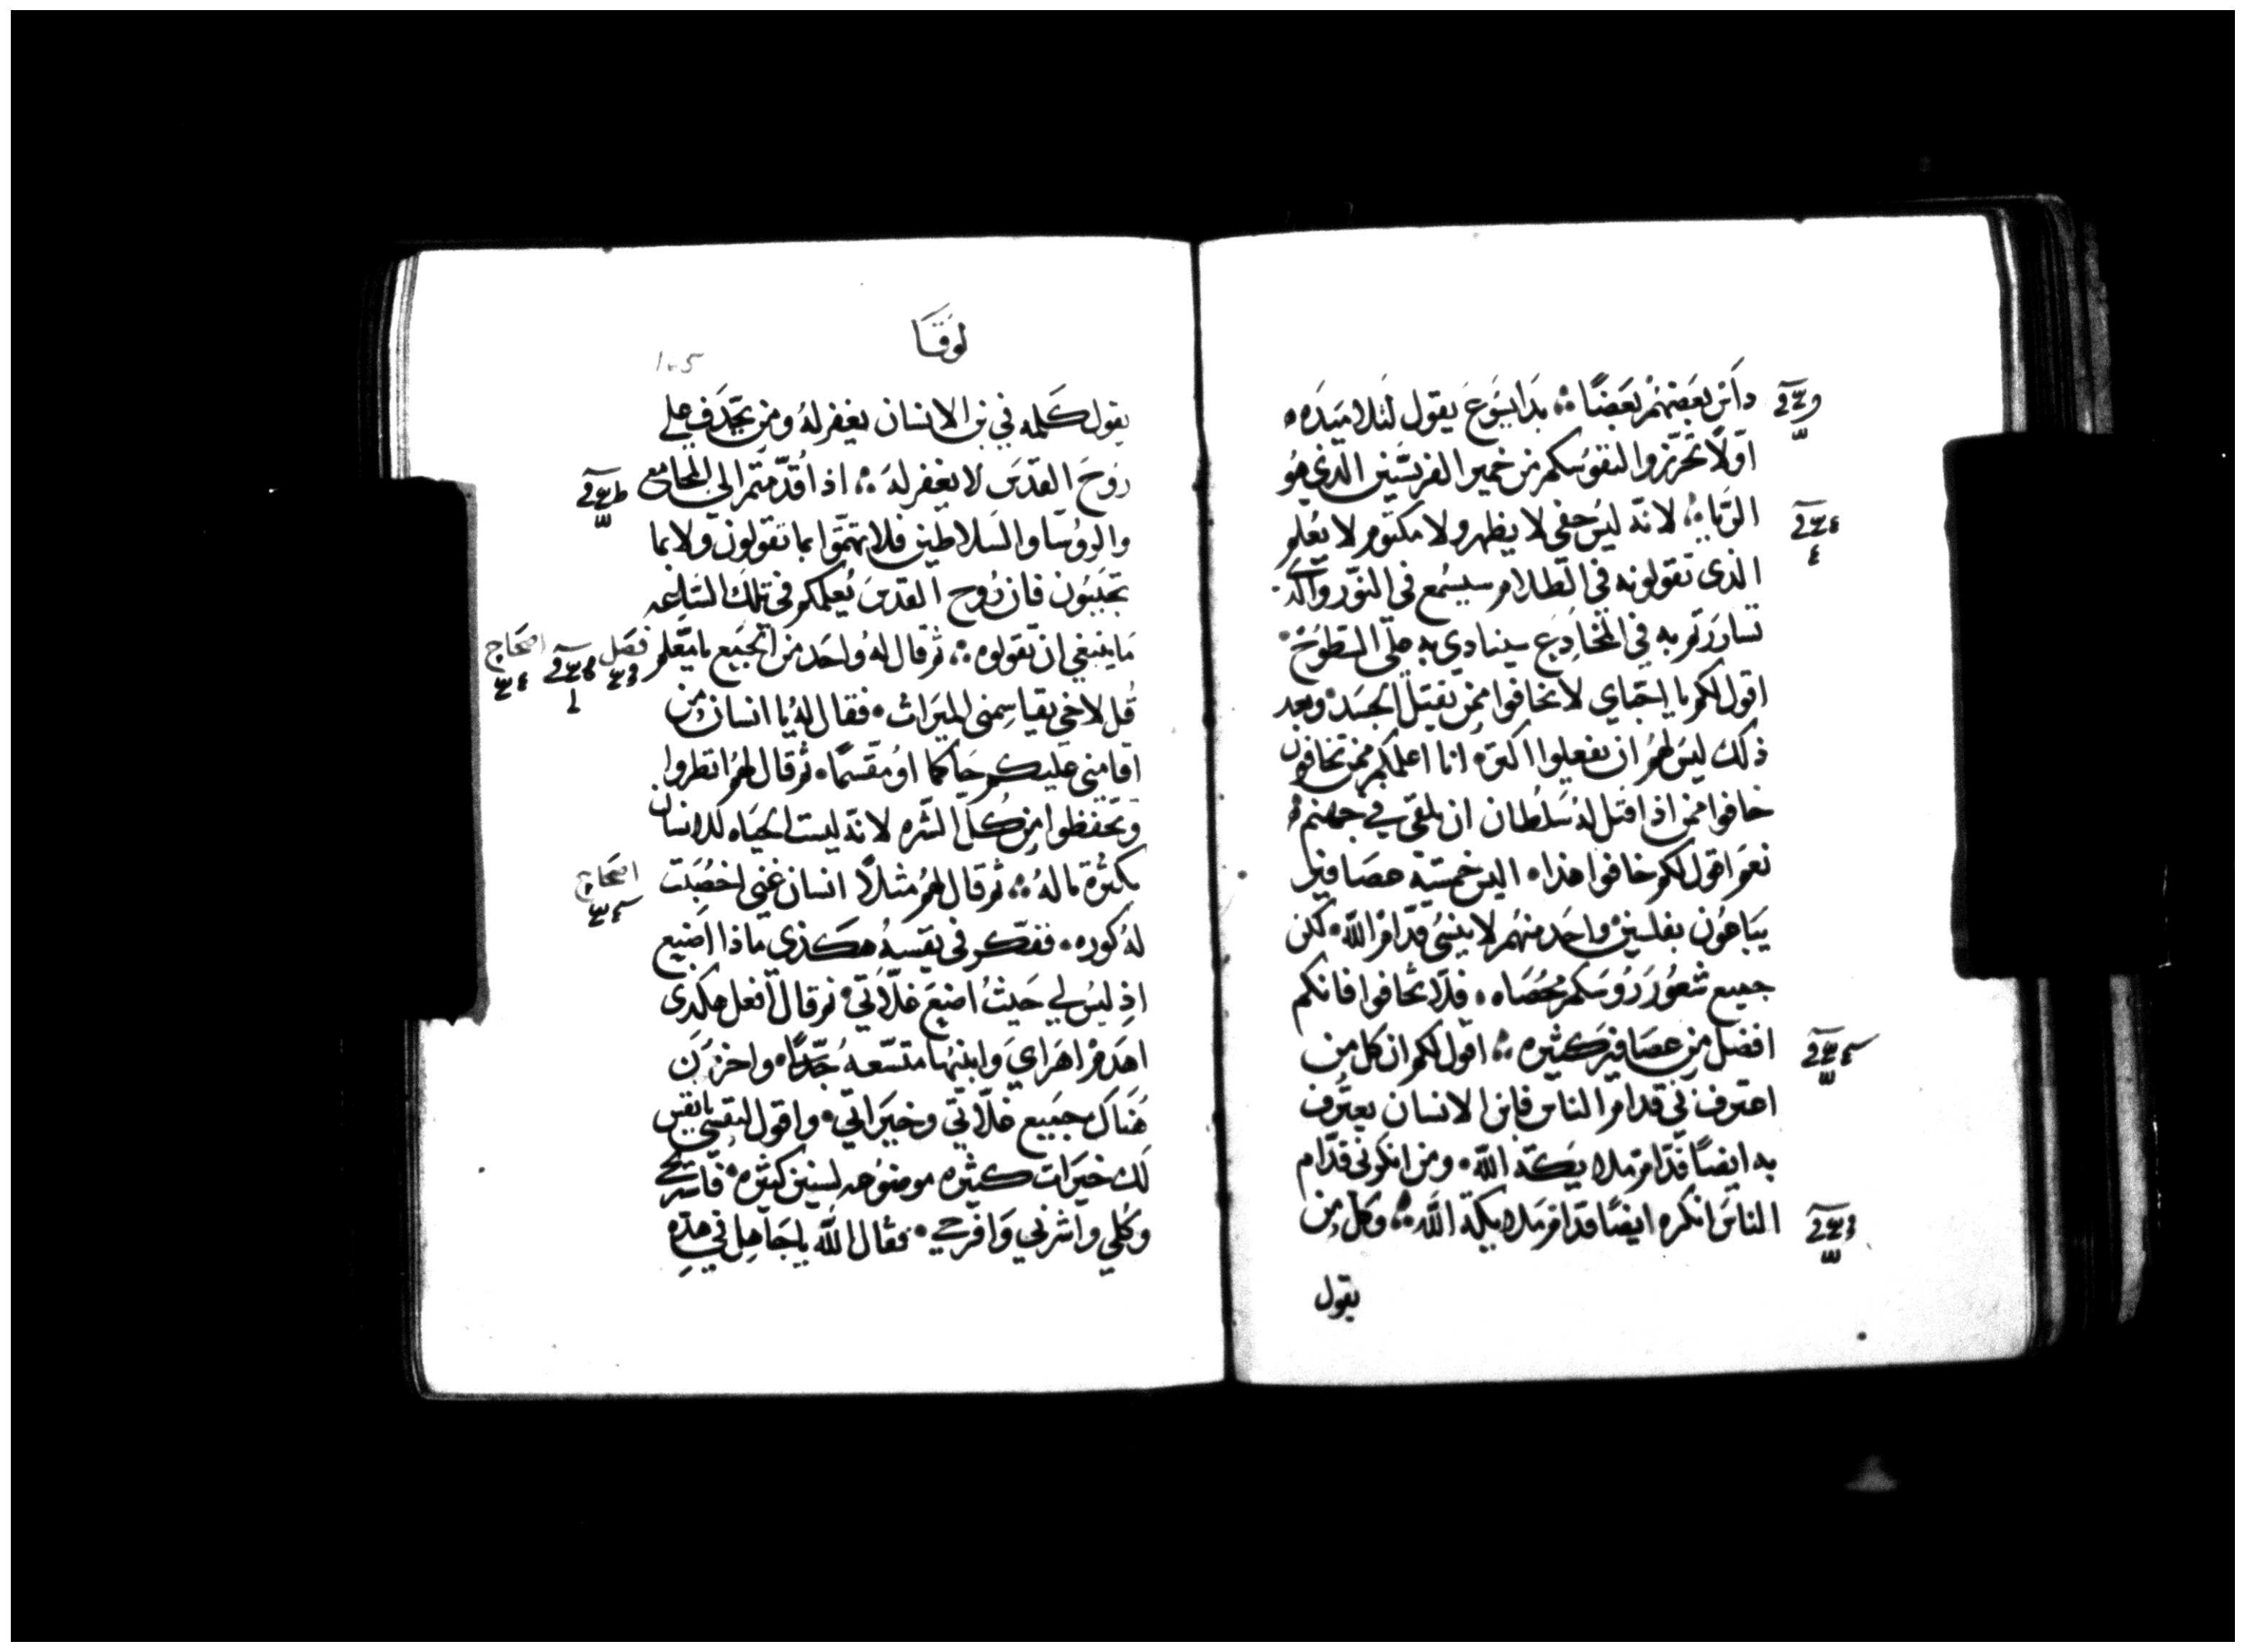 داس بعضهم بعضًا ؞ بدا يسوع يقول لتلاميده
اولًا تحرزوا لنفوسكم من خمير الفريسين الذي هو
الريا ؞ لانه ليس خفى لا يظهر ولا مكتوم لا يعلم
الذى تقولونه فى الظلام سيسمع فى النور والذى
تساررتم به في المخادع سينادى به على السطوح
اقول لكم يا احباي لا تخافوا ممن يقتل الجسد وبعد
ذلك ليس لهم ان يفعلوا اكتر انا اعلمكم ممن تخافون
خافوا ممن اذا قتل له سلطان ان يلقى في جهنم
نعم اقول لكم خافوا هذا اليس خمسة عصافير
يباعون بفلسين واحد منهم لا ينسى قدام الله لكن
جميع شعور رؤوسكم محصاه فلا تخافوا فانكم
افضل من عصافير كثيره ؞ اقول لكم ان كل من
اعترف بي قدام الناس فابن الانسان يعترف
به ايضًا قدام ملايكة الله ومن انكرنى قدام
الناس انكره ايضًا قدام ملايكة الله ؞ وكل من
يقول
لوقا
يقول كلمه في بن الانسان يغفر له ومن يجدف على
روح القدس لا يغفر له ؞ اذا قدمتم الى المجامع
والرؤسا والسلاطين فلا تهتموا بما تقولون ولا بما
تجيبون فان روح القدس يعلمكم فى تلك الساعه
ما ينبغي ان تقولوه ؞ ثم قال له واحد من الجميع يا معلم
فصل
اصحاح
قل لاخي يقاسمنى الميراث فقال له يا انسان من
اقامنى عليكم حاكما او مقسمًا ثم قال لهم انظروا
وتحفظوا من كل الشره لانه ليست الحياه للانسان
بكثرة ماله ؞ ثم قال لهم مثلًا انسان غني اخصبت
اصحاح
له كوره ففكر فى نفسه هكذى ماذا اضيع
اذ ليس لي حيث اضيع غلاتي ثم قال افعل هكدى
اهدم اهراي وابنيها متسعه جدًا واخزن
هناك جميع غلاتي وخيراتي واقول لنفسي يانفس
لك خيرات كثيره موضوعه لسنين كثيره فاستريحي
وكلي واشربي وافرحي فقال الله يا جاهل في هذه